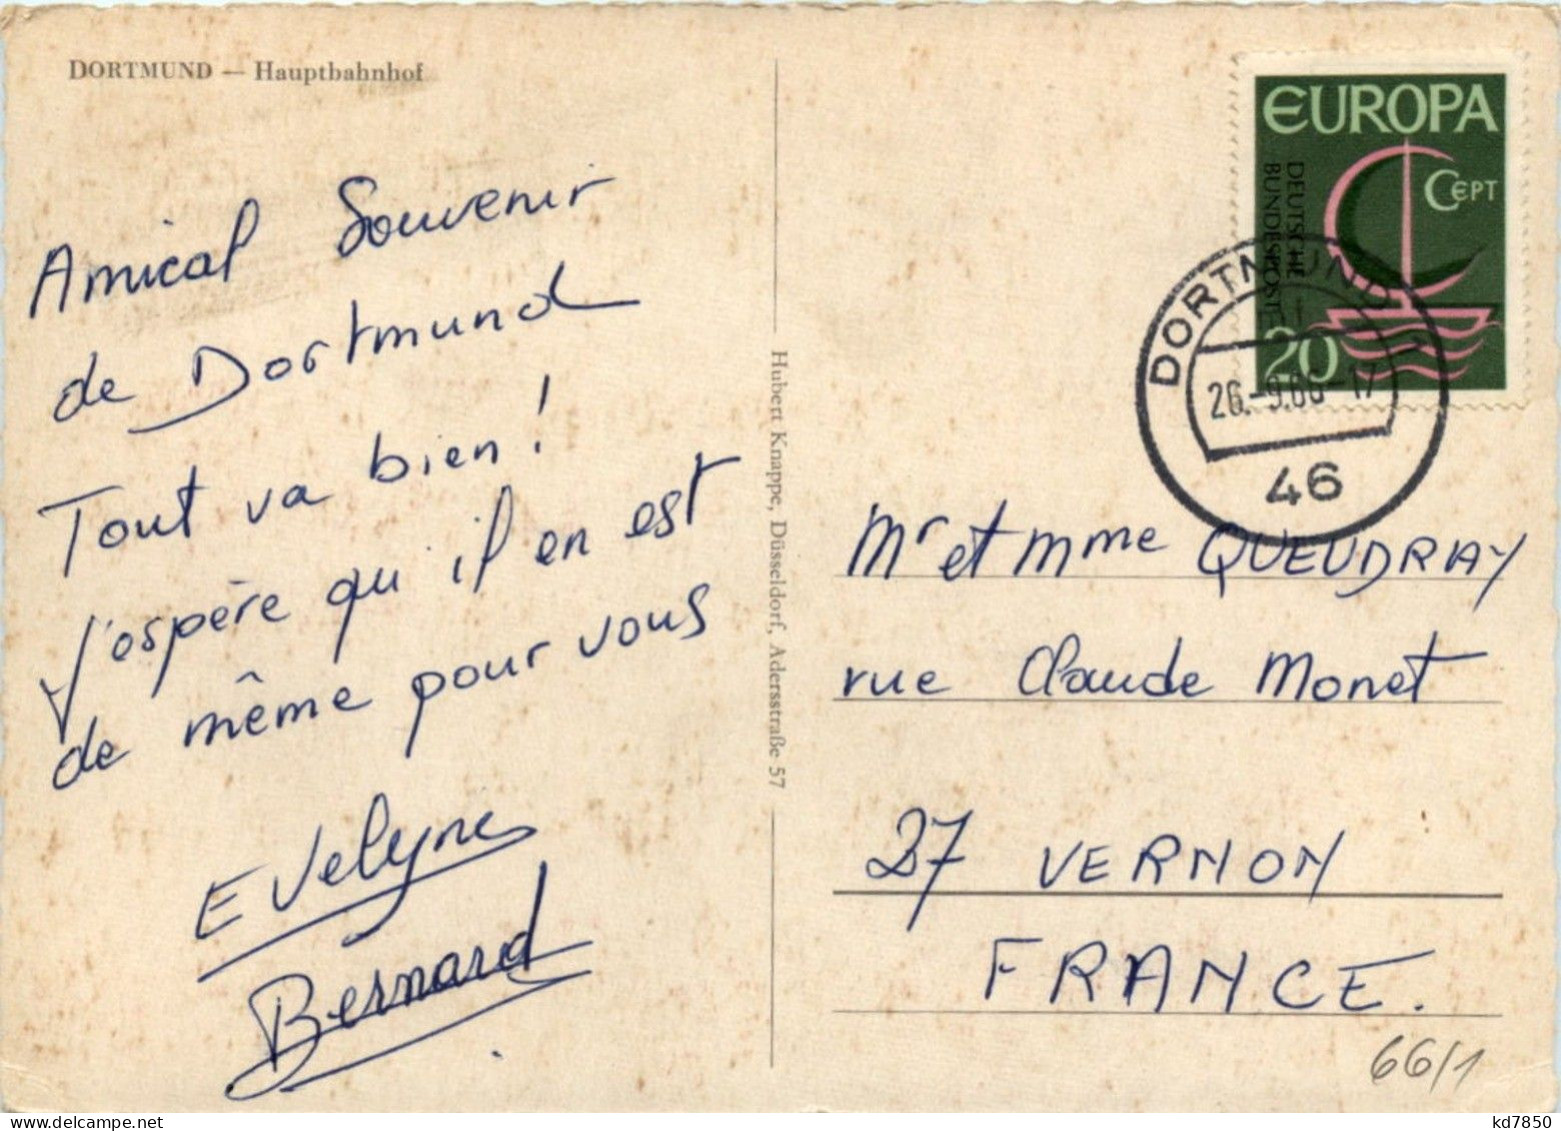 DORTMUND — Hauptbahnhof
Amical Souvenir
de Dortmund
Tout va bien !
J'espère qu'il en est
de même pour vous
Evelyne
Bernard
Hubert Knappe, Düsseldorf, Adersstraße 57
EUROPA
CEPT
DEUTSCHE
BUNDESPOST
20
DORTMUND
26.-9.66-17
46
Mr et Mme QUEUDRAY
rue Claude Monet
27 VERNON
FRANCE.
66/1
kd7850